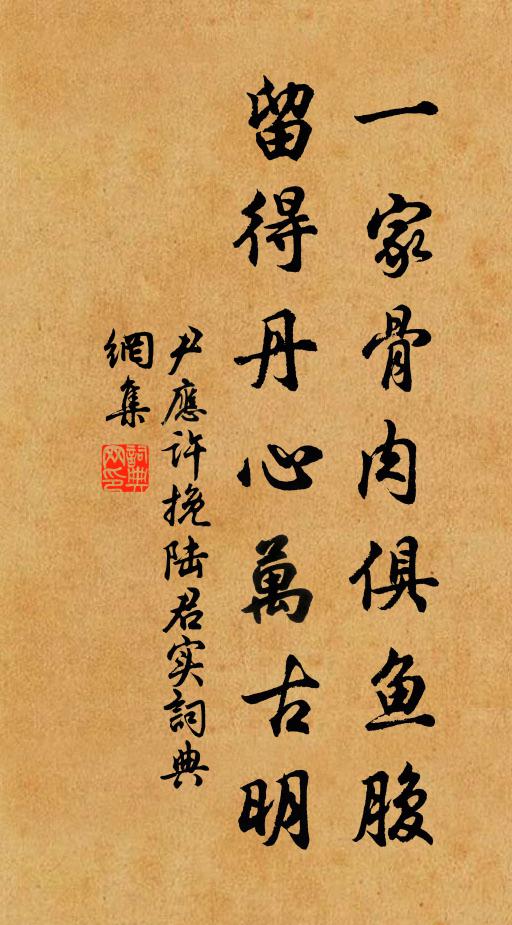 一家骨肉俱鱼腹
留得丹心萬古明
尹應许挽陆君实詞典
網集
詞典网印